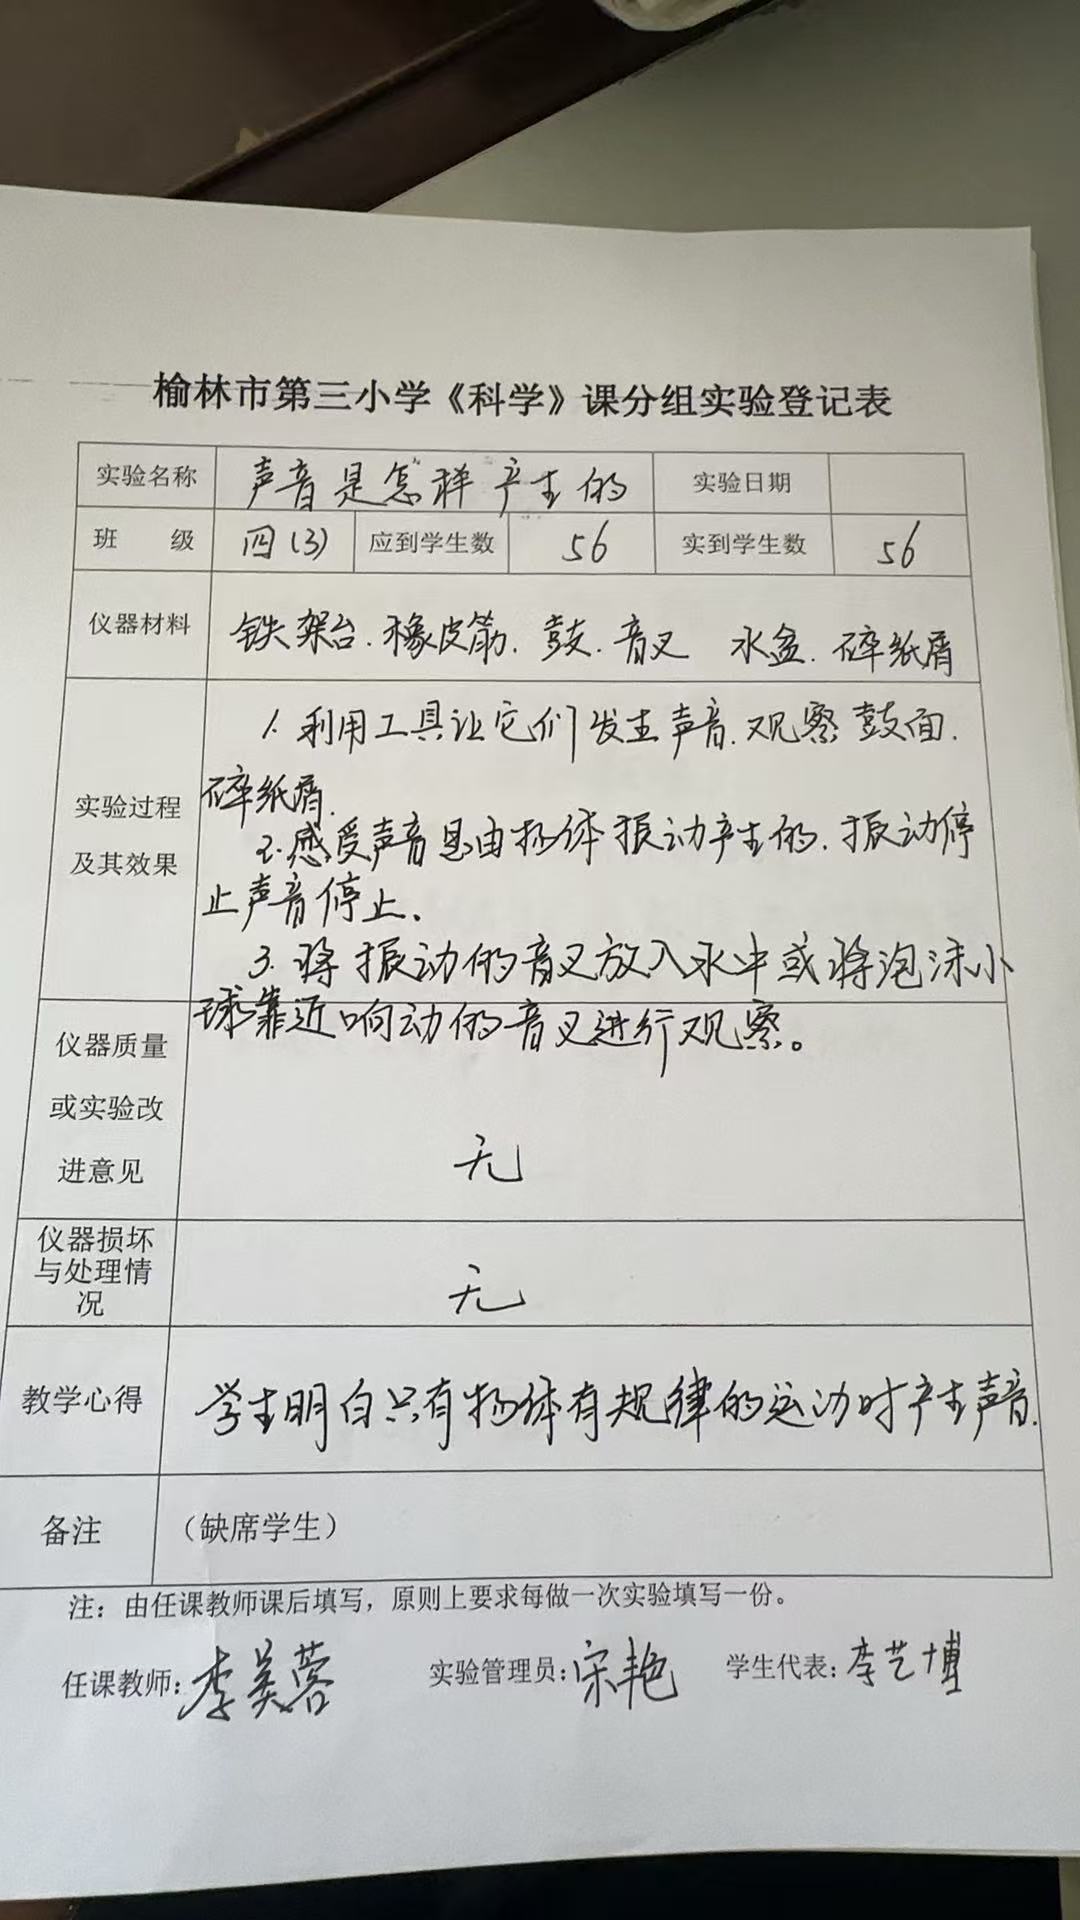 榆林市第三小学《科学》课分组实验登记表
实验名称 声音是怎样产生的 实验日期
班 级 四(3) 应到学生数 56 实到学生数 56
仪器材料 铁架台.橡皮筋.鼓.音叉 水盆.碎纸屑
1.利用工具让它们发生声音.观察鼓面.
碎纸屑.
实验过程
及其效果
2.感受声音是由物体振动产生的.振动停
止声音停止.
3.将振动的音叉放入水中或将泡沫小
球靠近响动的音叉进行观察。
仪器质量
或实验改
进意见
无
仪器损坏
与处理情
况
无
教学心得 学生明白只有物体有规律的运动时产生声音.
备注 (缺席学生)
注：由任课教师课后填写，原则上要求每做一次实验填写一份。
任课教师:李美蓉 实验管理员:宋艳 学生代表:李艺博